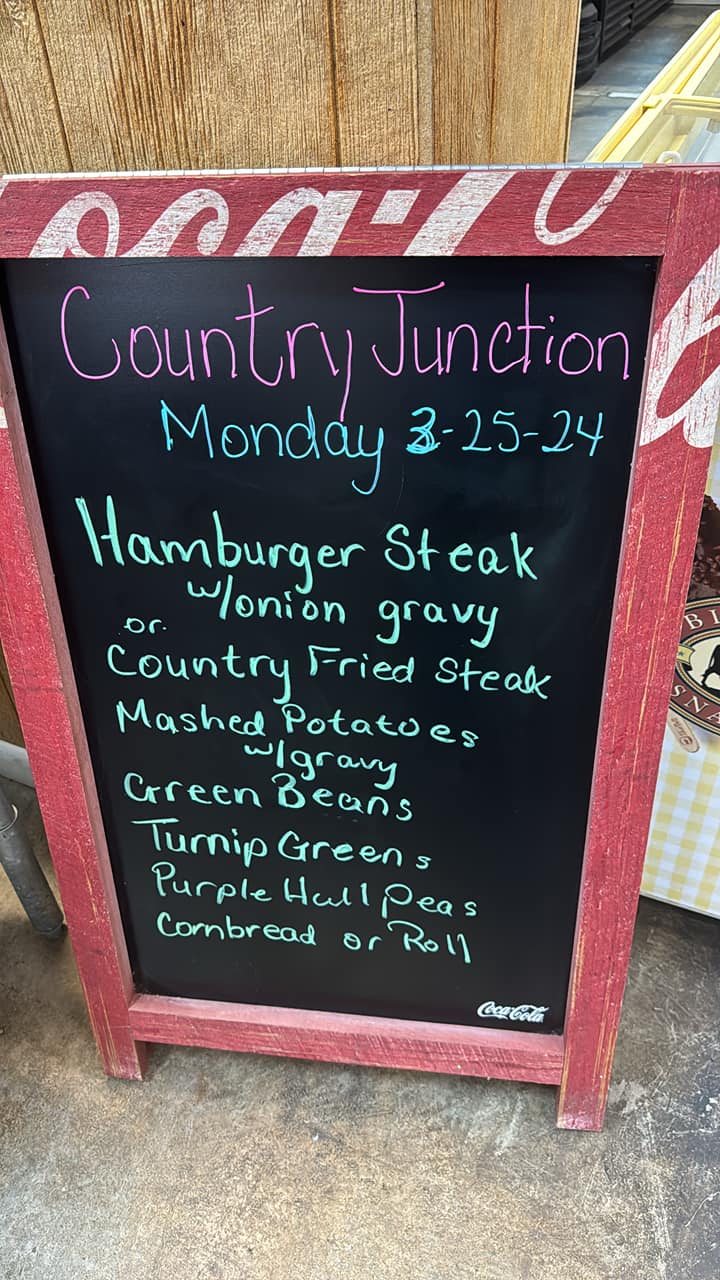 Coca-Cola
Country Junction
Monday 3-25-24
Hamburger Steak
w/onion gravy
or
Country Fried Steak
Mashed Potatoes
w/gravy
Green Beans
Turnip Greens
Purple Hull Peas
Cornbread or Roll
Coca-Cola